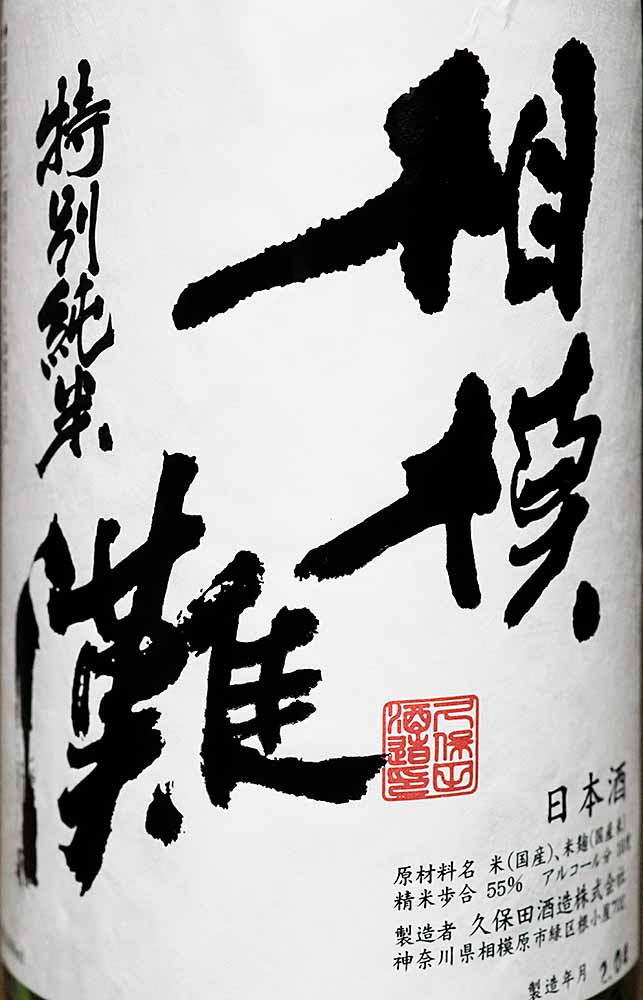 相模灘
特別純米
久保田
酒造印
日本酒
原材料名 米(国産)、米麹(国産米)
精米歩合 55% アルコール分
製造者 久保田酒造株式会社
神奈川県相模原市緑区根小屋702
製造年月 2.0